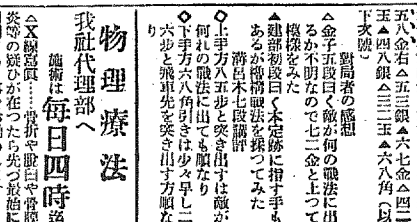 五八金右▲五三銀▲六七金△四三
玉▲四八銀△三二玉▲六八角（以
下次號）
對局者の感想
△金子五段曰く敵が何の戰法に出
るか不明なので七二金と上つて
模樣をみた
▲建部初段曰く本定跡に指す手も
あるが棒構戰法を採つてみた
溝呂木七段講評
◇上手方八五歩と突き出すは敵が
何れの戰法に出ても順なり
◇下手方六八角引きは少々早し二
六歩と飛車先を突き出す方順な
り
物理療法
我社代理部へ
施術は毎日四時迄
△X線寫眞……骨折や脱臼や骨膜
炎等の疑ひが在つたら先づ最始に